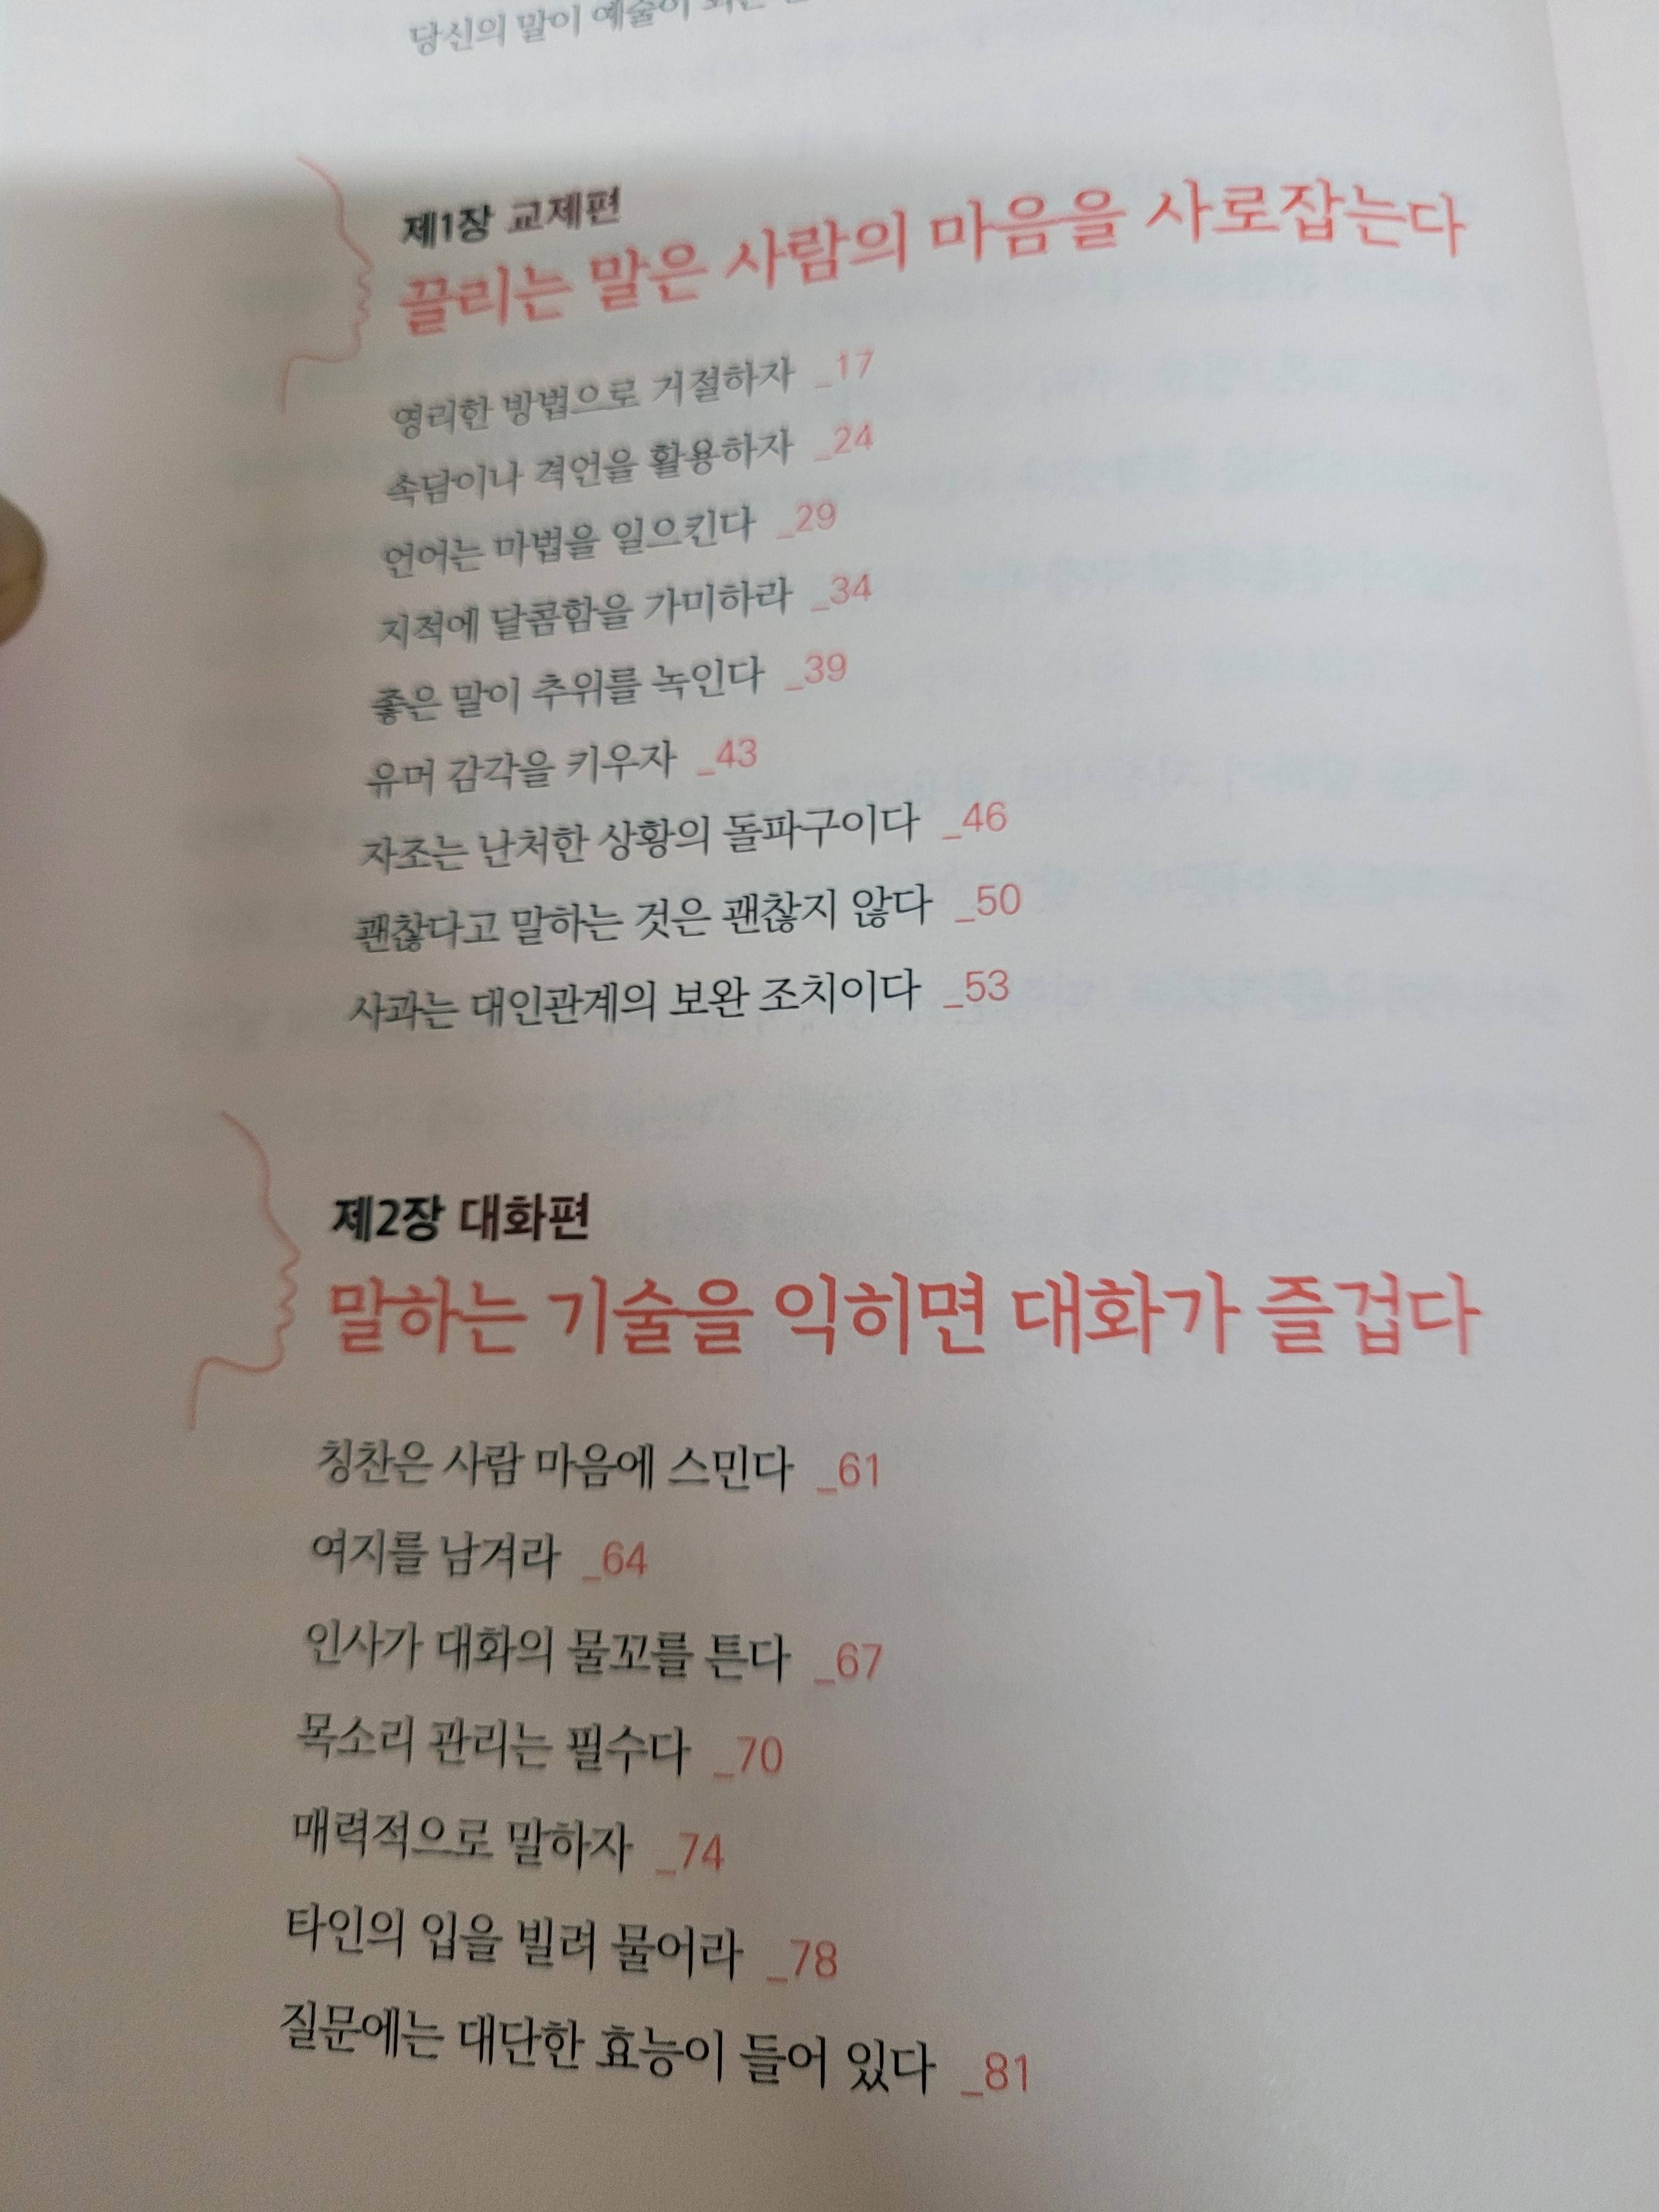 당신의 말이 예술이
제1장 교제편
끌리는 말은 사람의 마음을 사로잡는다
영리한 방법으로 거절하자 _17
속담이나 격언을 활용하자 _24
언어는 마법을 일으킨다 _29
지적에 달콤함을 가미하라 _34
좋은 말이 추위를 녹인다 _39
유머 감각을 키우자 _43
자조는 난처한 상황의 돌파구이다 _46
괜찮다고 말하는 것은 괜찮지 않다 _50
사과는 대인관계의 보완 조치이다 _53
제2장 대화편
말하는 기술을 익히면 대화가 즐겁다
칭찬은 사람 마음에 스민다 _61
여지를 남겨라 _64
인사가 대화의 물꼬를 튼다 _67
목소리 관리는 필수다 _70
매력적으로 말하자 _74
타인의 입을 빌려 물어라 _78
질문에는 대단한 효능이 들어 있다 _81